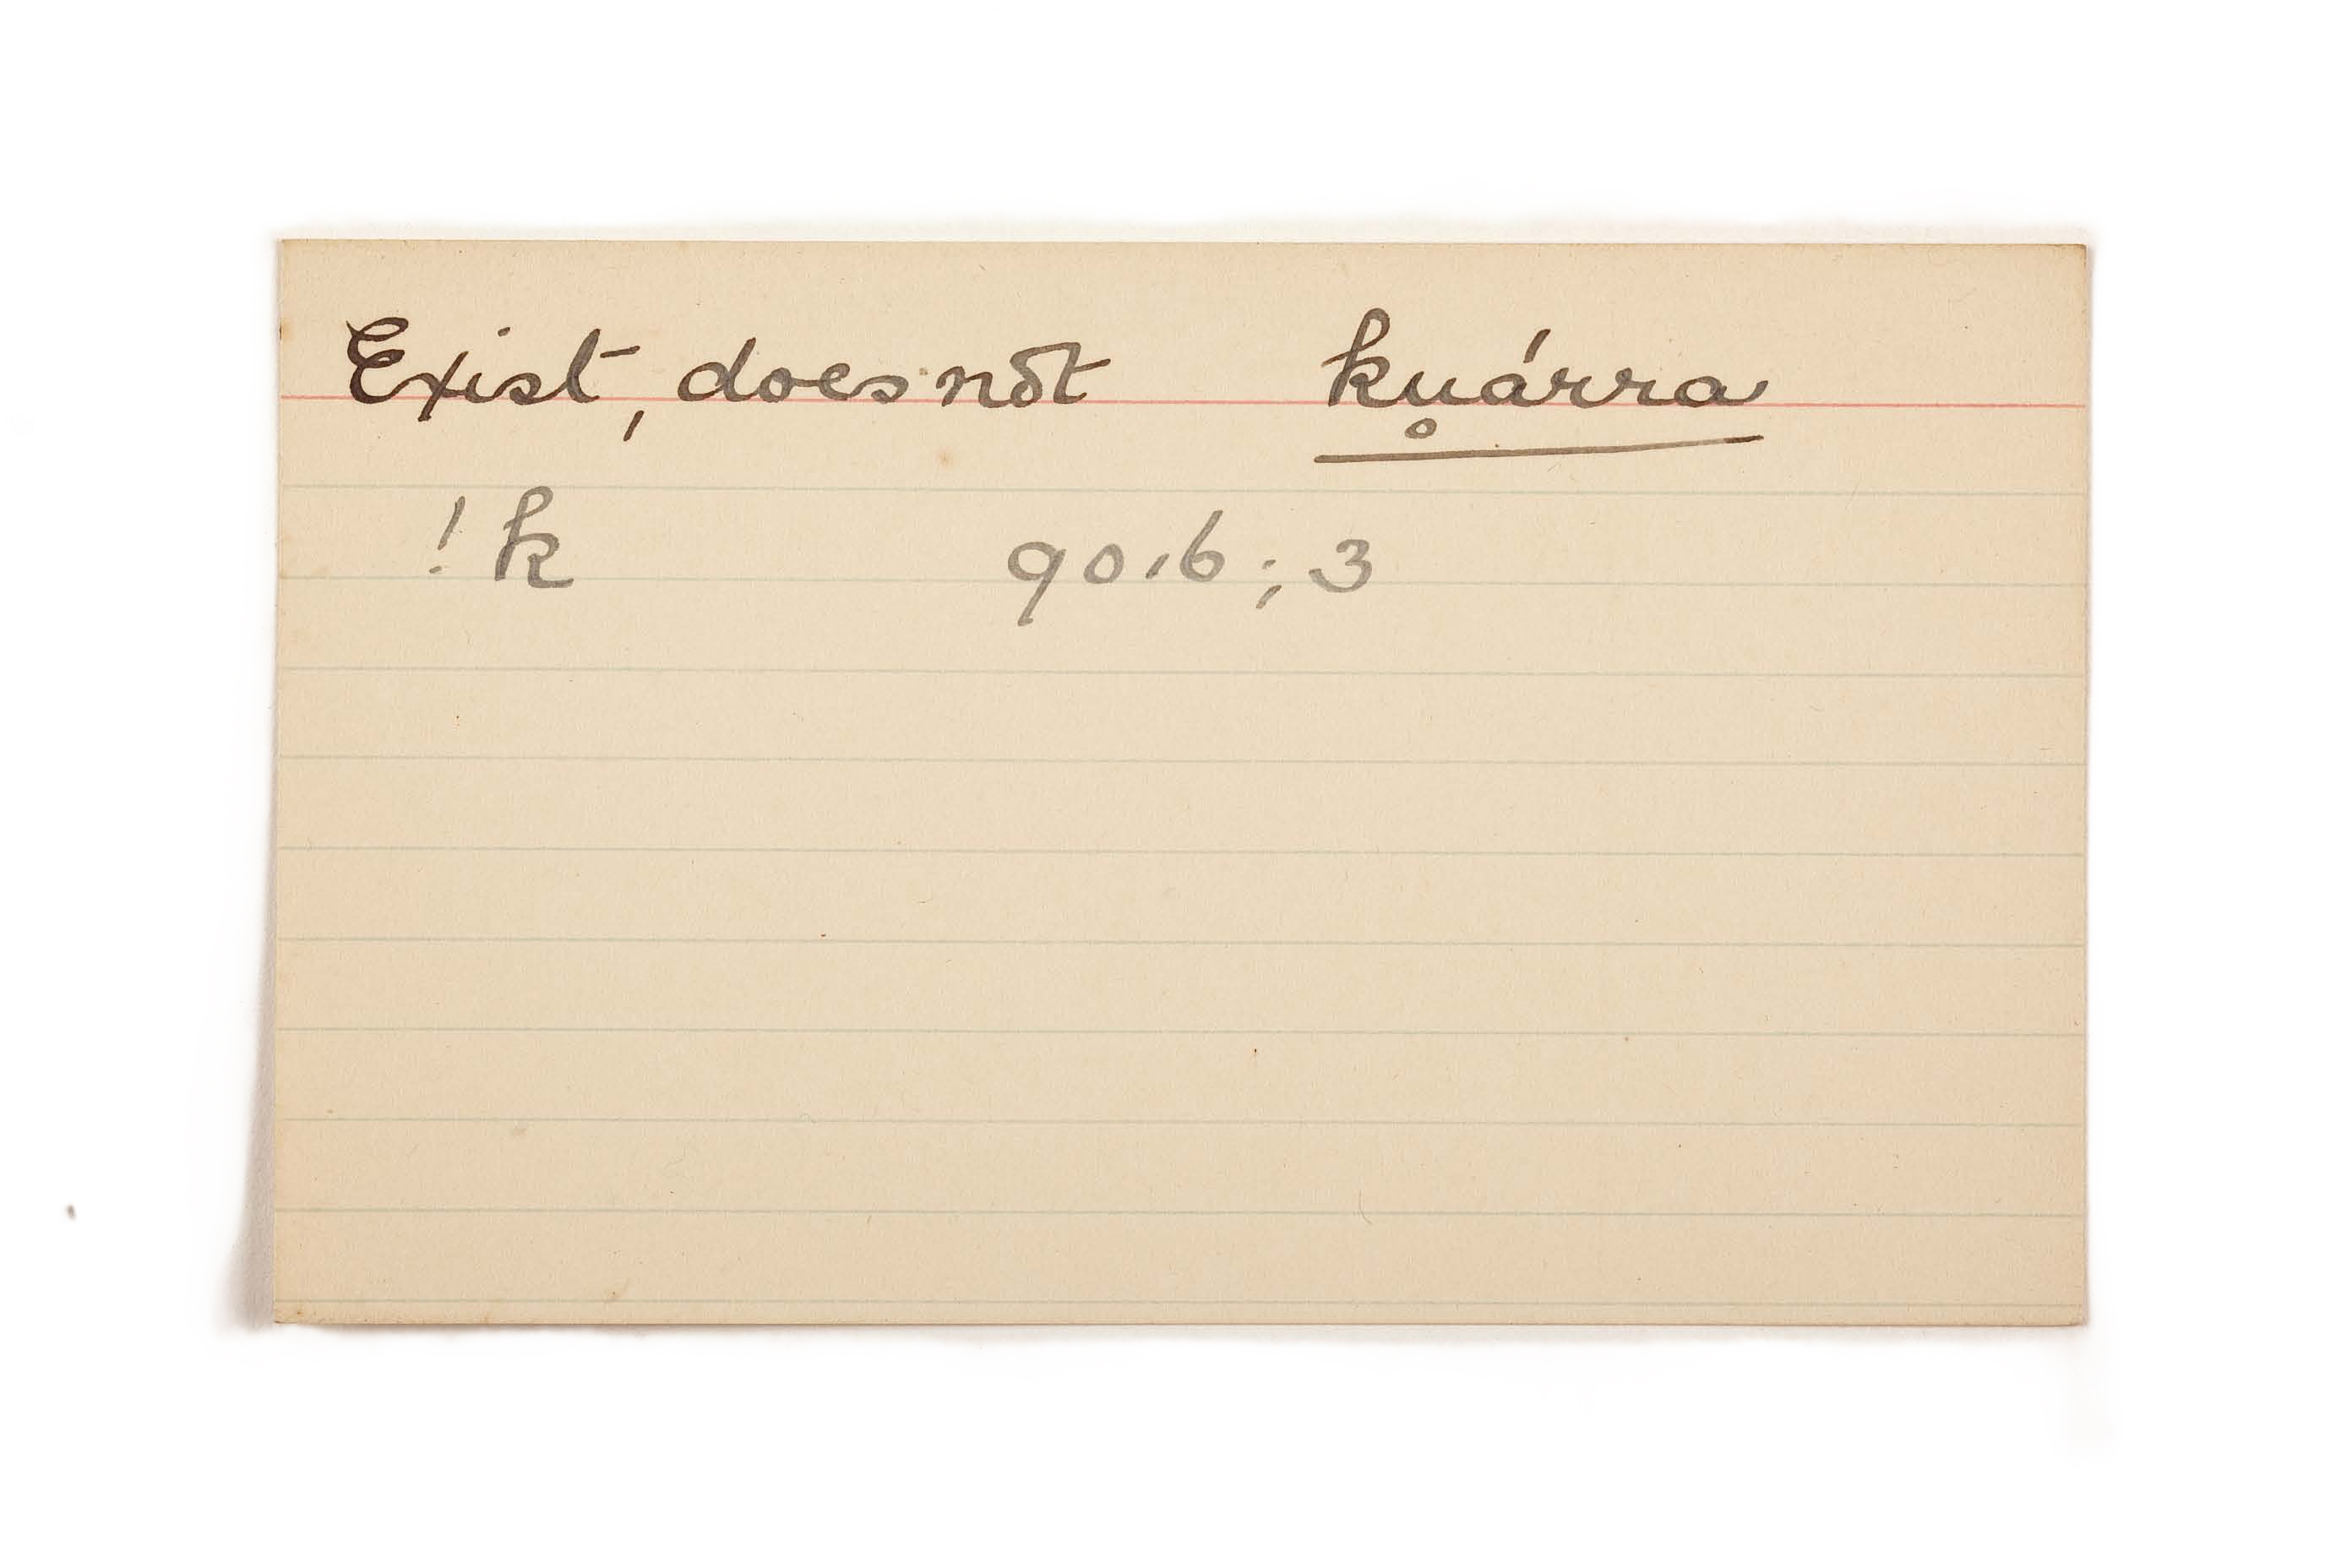 Exist, does not ku̥árra
! k 90.6 ; 3